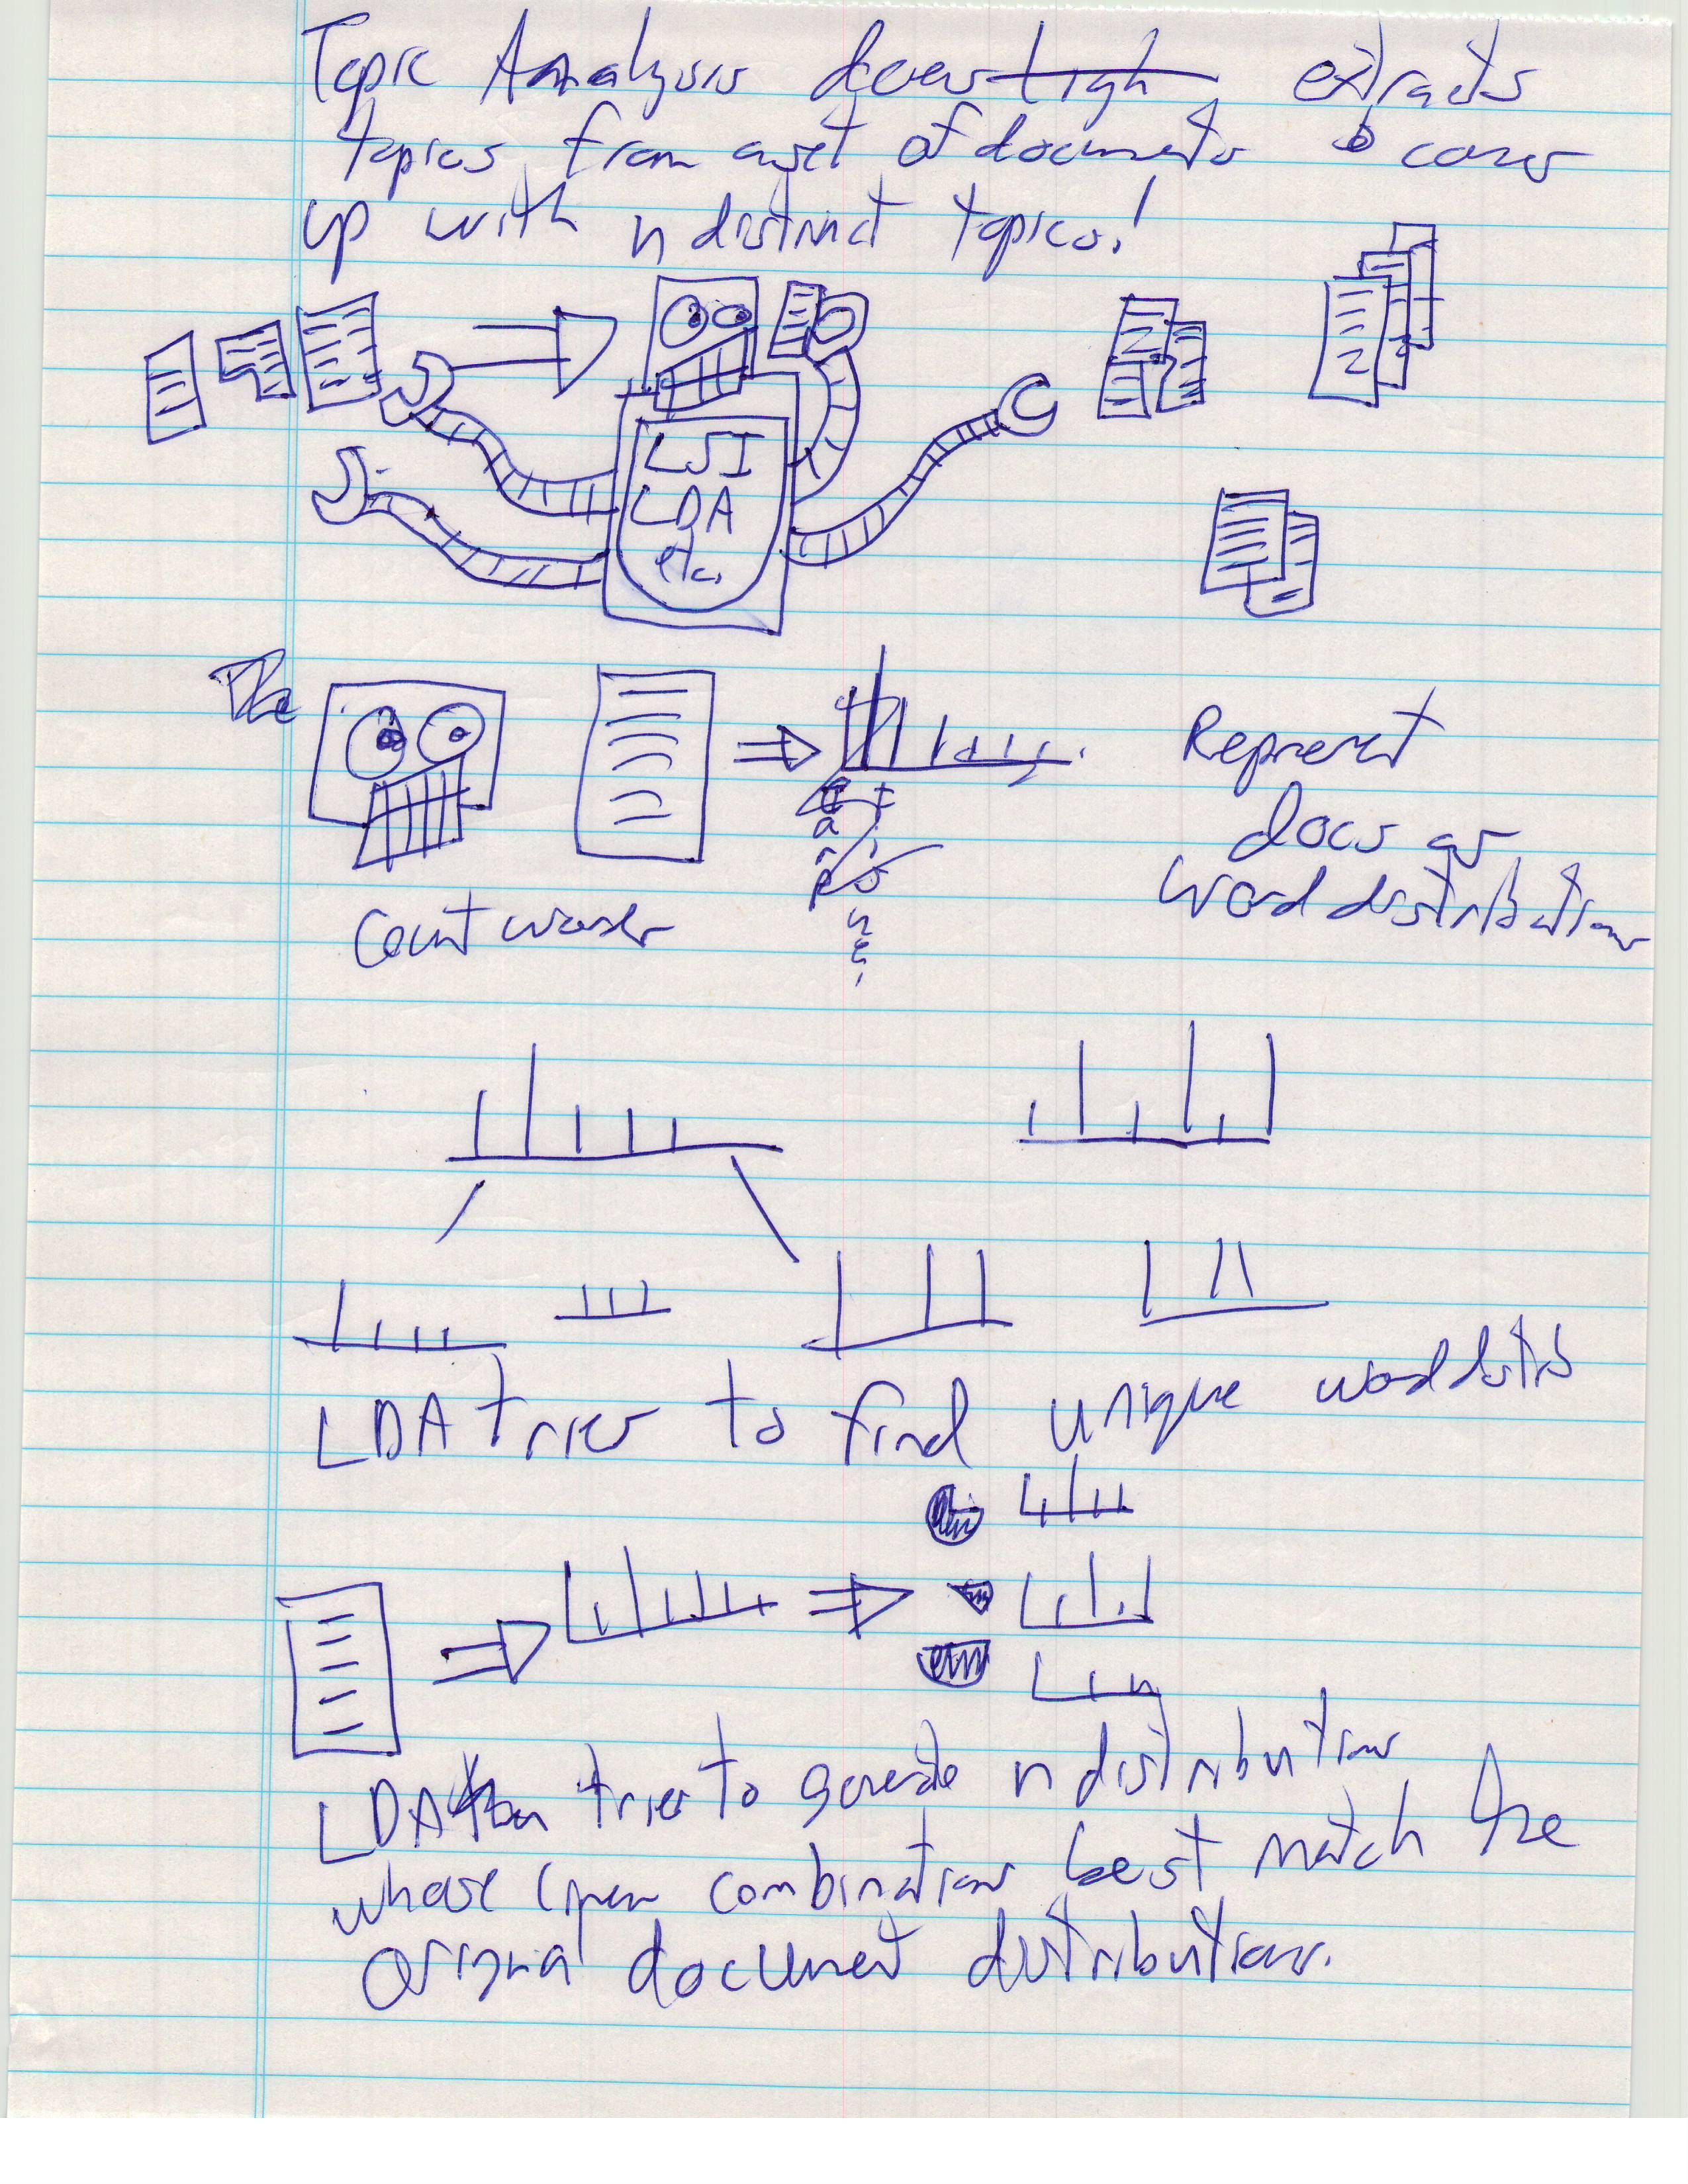 Topic Analysis extracts
topics from a set of documents & comes
up with n distinct topics!
LSI
LDA
etc.
The
Represent
docs as
word distributions
Count words
LDA tries to find unique word dists
LDA then tries to generate n distributions
whose linear combinations best match the
original document distributions.